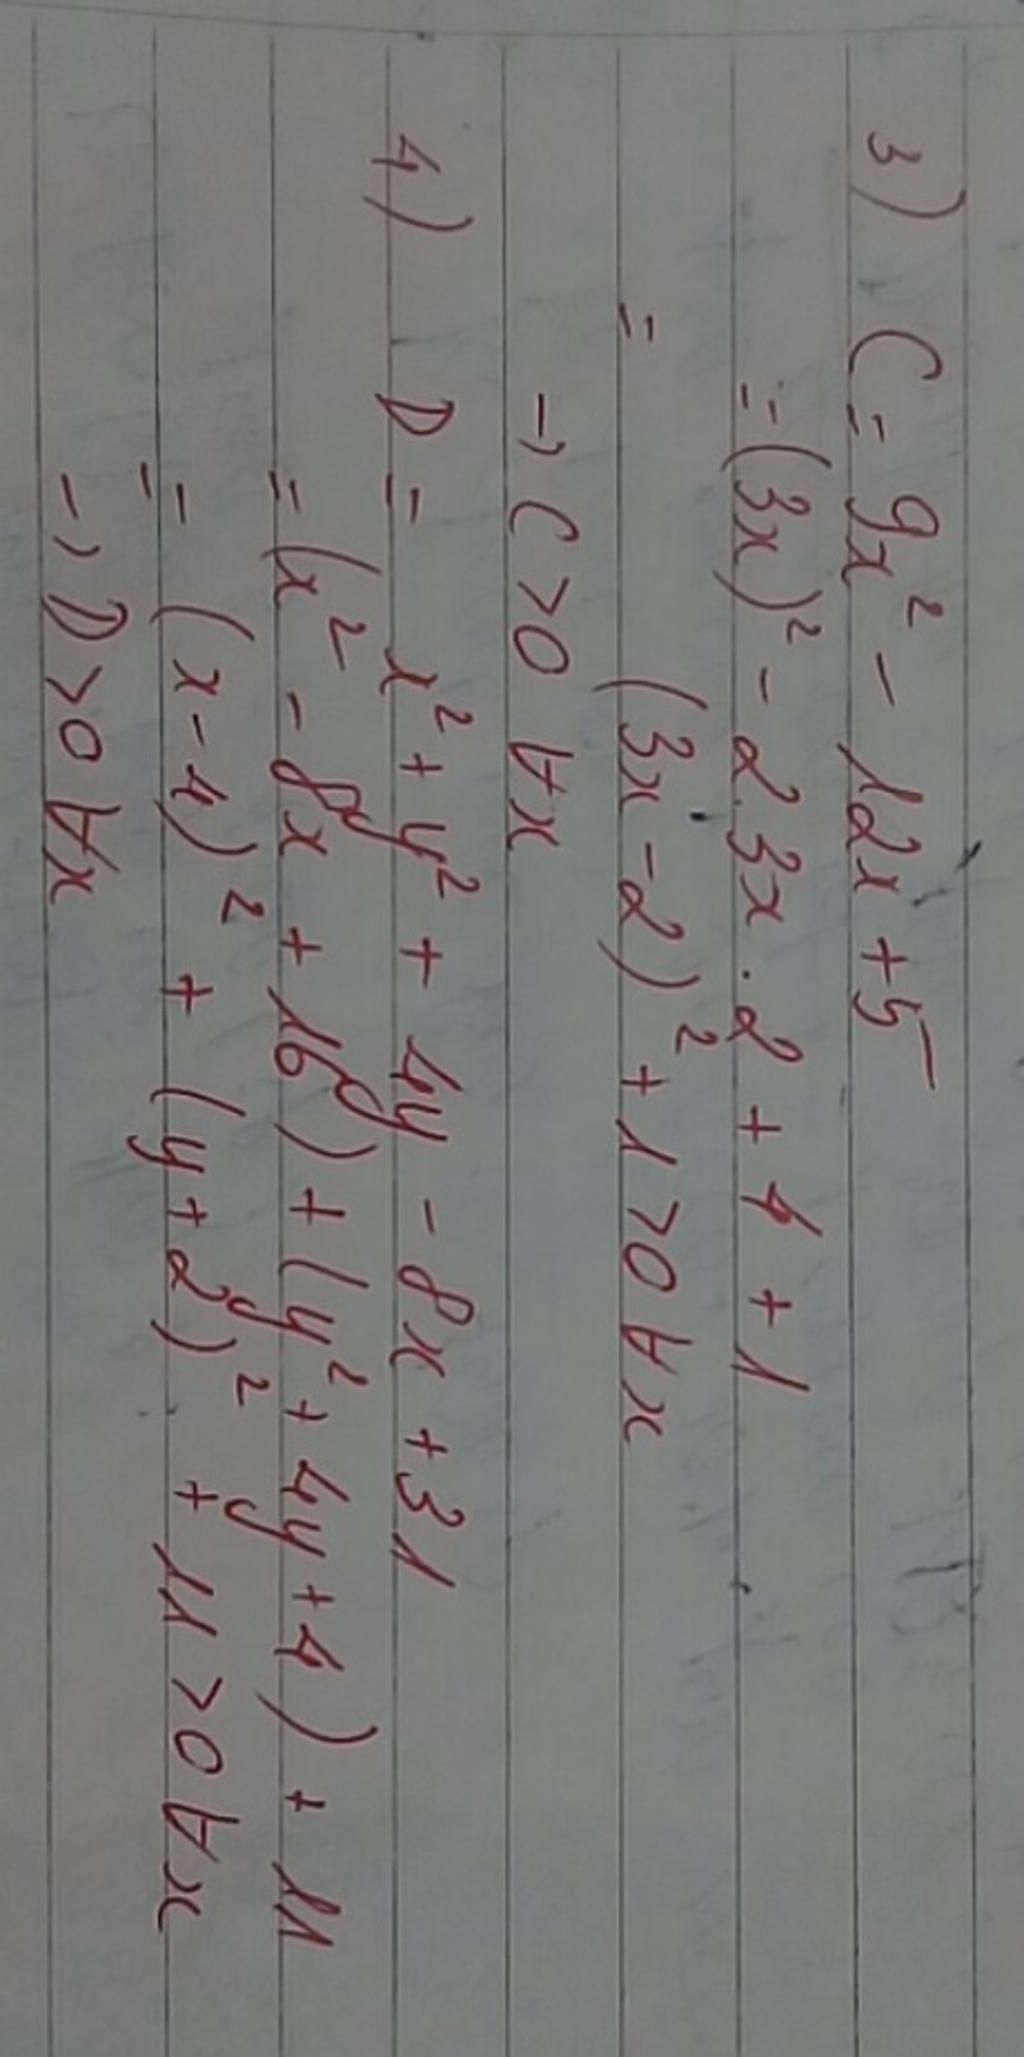 3) C = 9x² - 12x + 5
= (3x)² - 2.3x.2 + 4 + 1
= (3x - 2)² + 1 > 0 ∀x
→ C > 0 ∀x
4) D = x² + y² + 4y - 8x + 31
= (x² - 8x + 16) + (y² + 4y + 4) + 11
= (x - 4)² + (y + 2)² + 11 > 0 ∀x
→ D > 0 ∀x